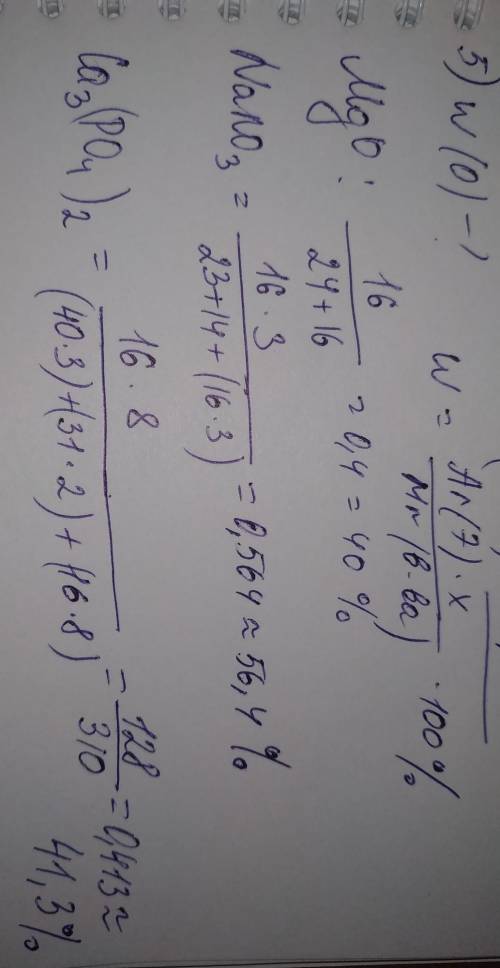 5) W(O) - ?  W = Ar(Э)·x / Mr(в-ва) · 100%
MgO: 16 / 24+16 = 0,4 = 40%
NaNO₃ = 16·3 / 23+14+(16·3) = 0,564 ≈ 56,4%
Ca₃(PO₄)₂ = 16·8 / (40·3)+(31·2)+(16·8) = 128/310 = 0,413 ≈
41,3%